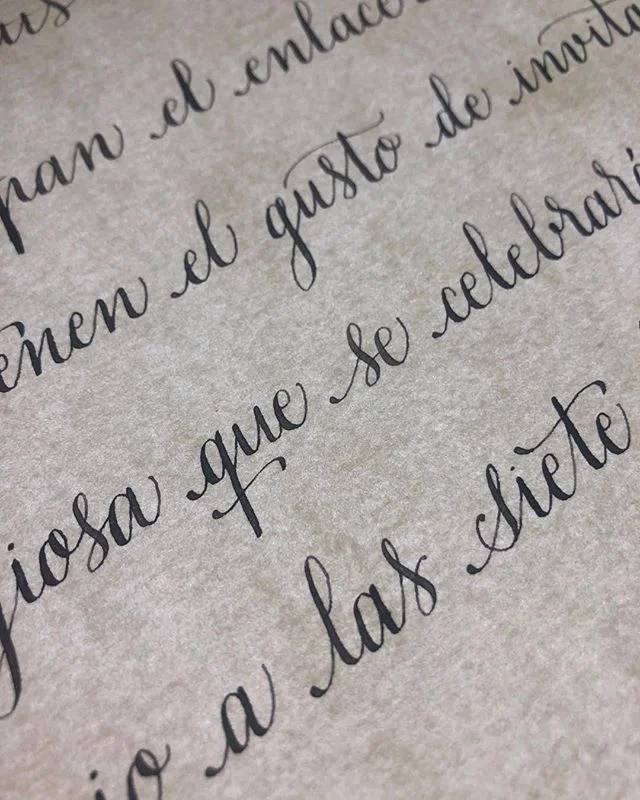 pan el enlace
enen el gusto de invita
giosa que se celebrará
io a las siete